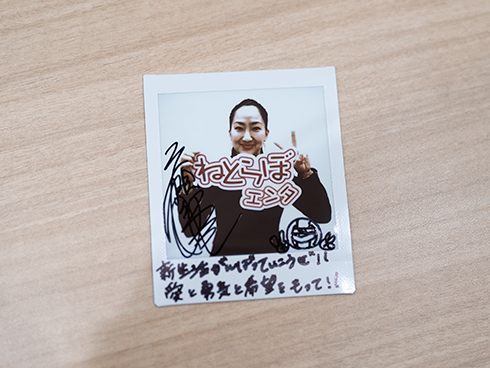 ねとらぼ
エンタ
新生活がんばっていこうぜ!!
愛と勇気と希望をもって!!